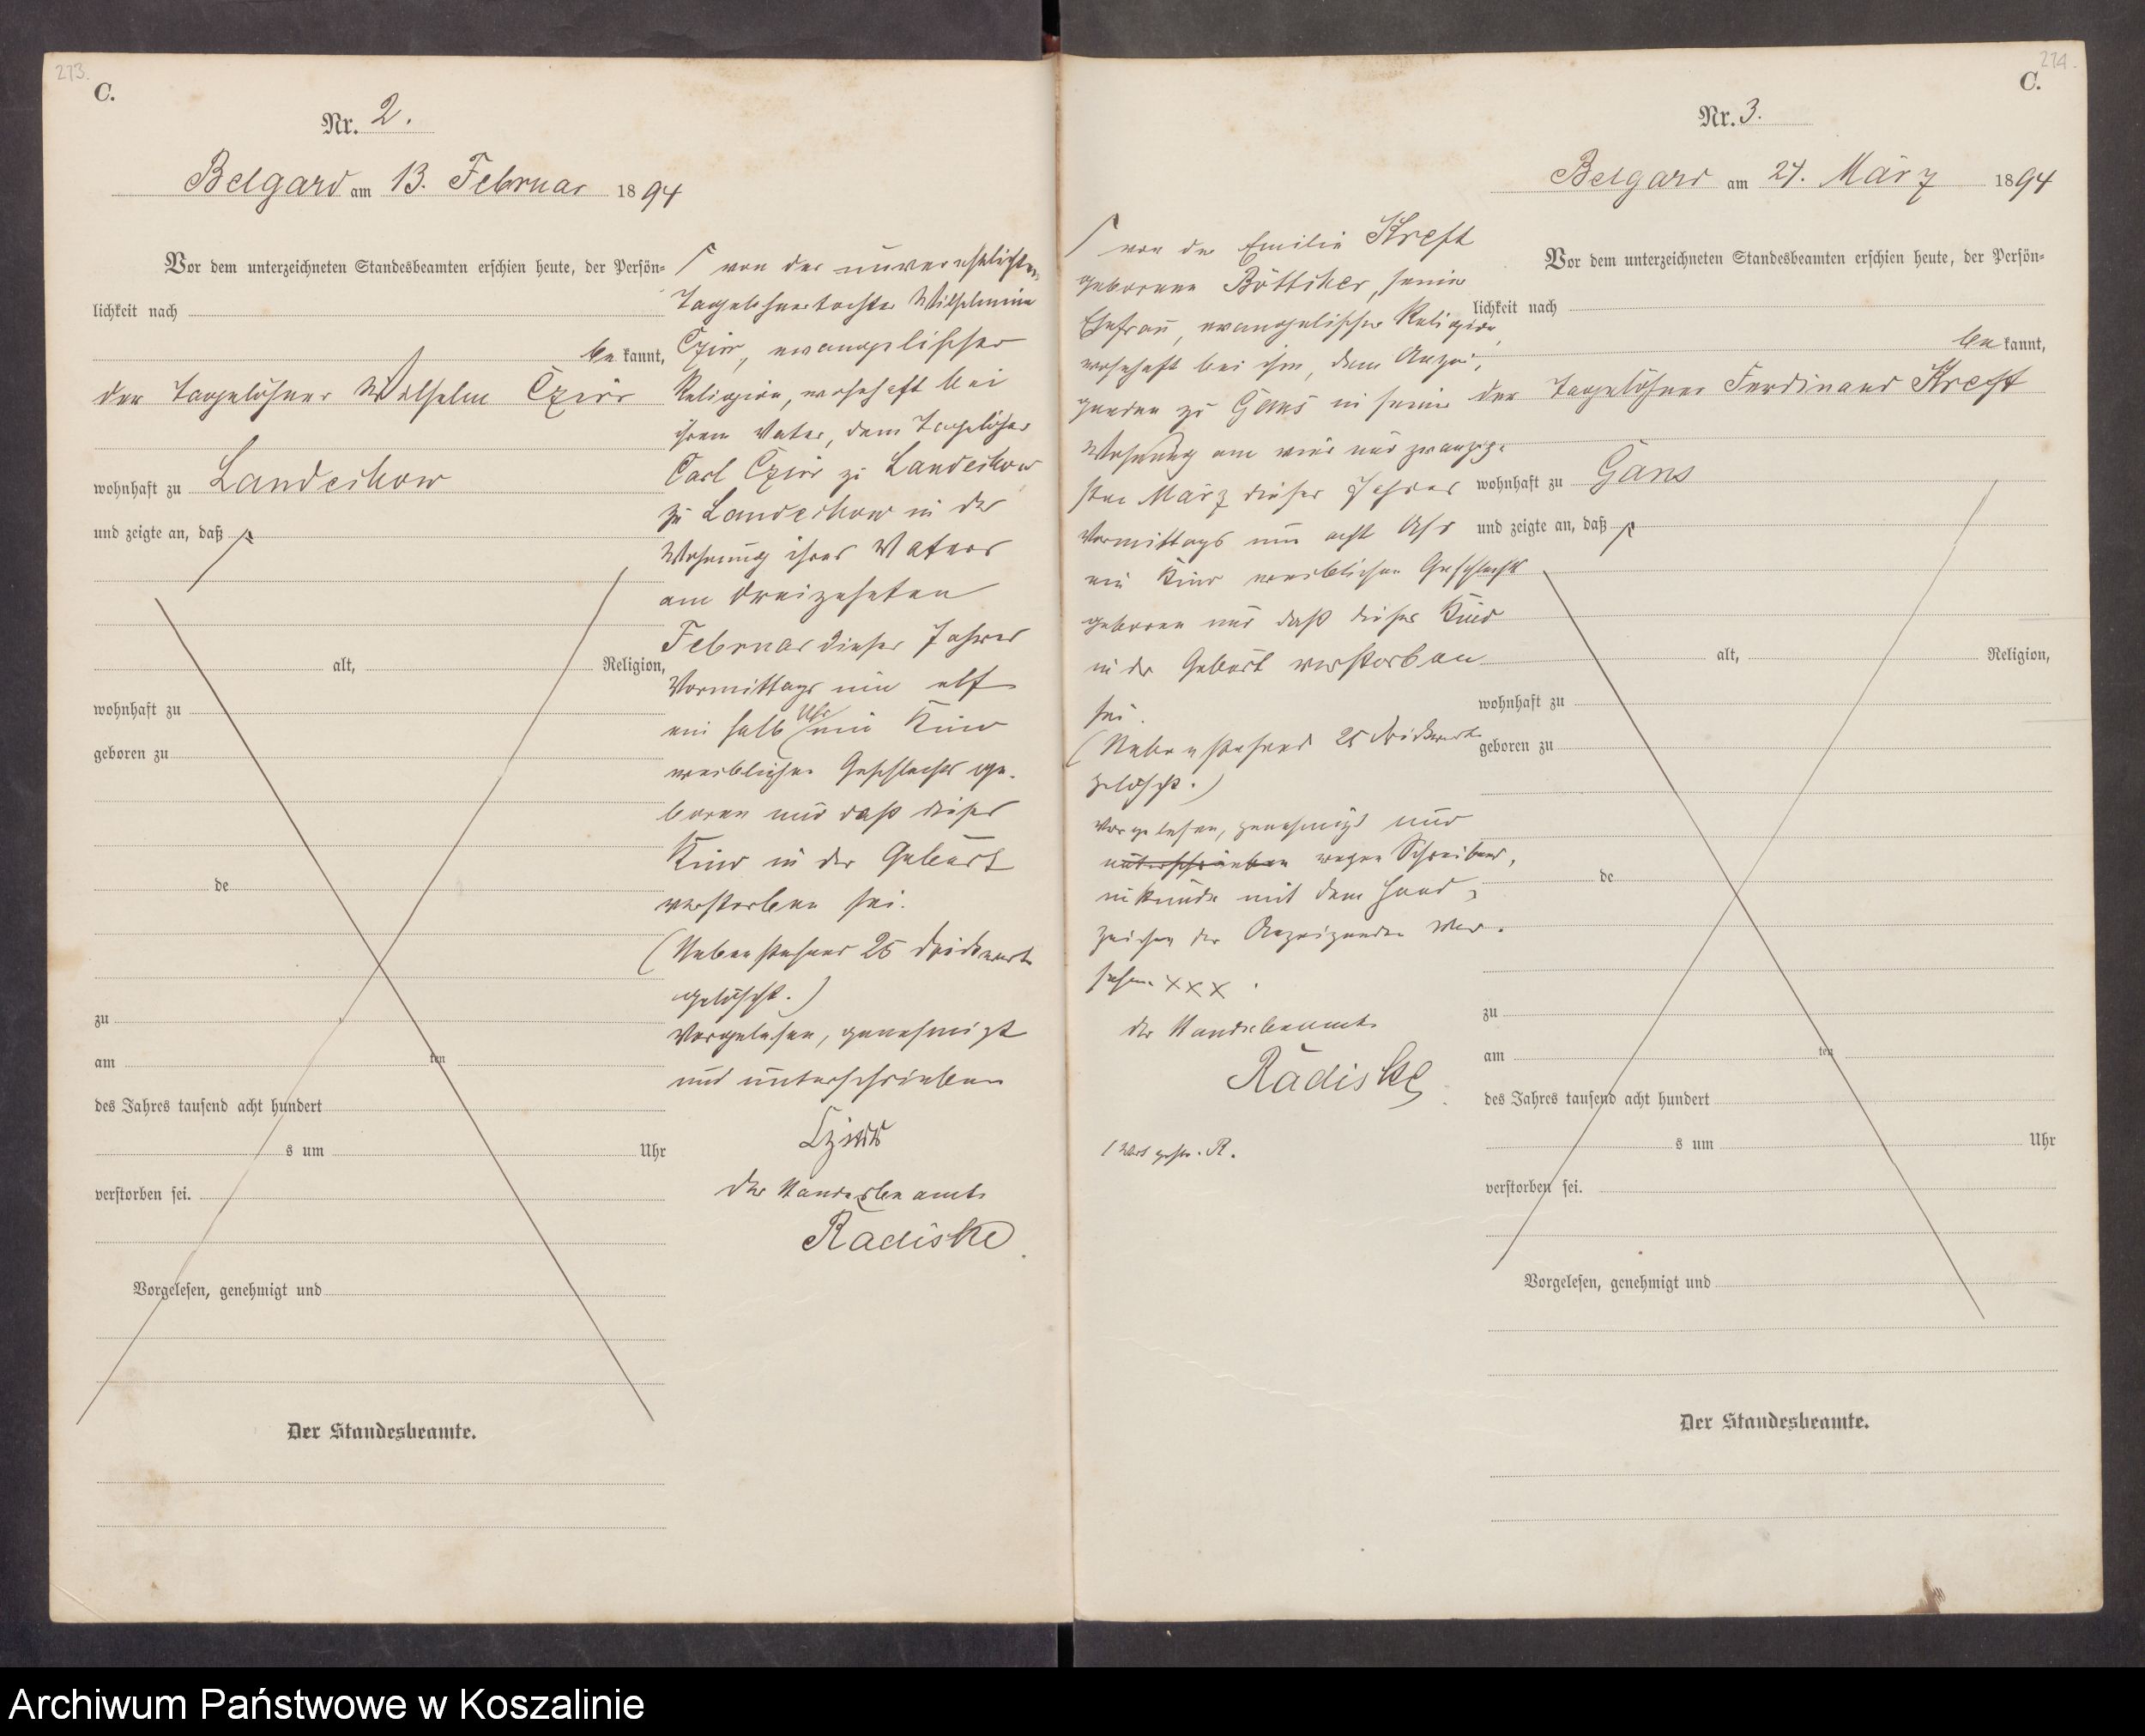 273.
C.
Nr. 2.
Belgard am 13. Februar 1894
Vor dem unterzeichneten Standesbeamten erschien heute, der Persön-
lichkeit nach
be kannt,
der Tagelöhner Wilhelm Czirr
wohnhaft zu Landechow
und zeigte an, daß
alt, Religion,
wohnhaft zu
geboren zu
de
zu
am ten
des Jahres tausend acht hundert
s um Uhr
verstorben sei.
Vorgelesen, genehmigt und
Der Standesbeamte.
von der unverehelichten
Tagelöhnertochter Wilhelmine
Czirr, evangelischer
Religion, wohnhaft bei
ihrem Vater, dem Tagelöhner
Carl Czirr zu Landechow
zu Landechow in der
Wohnung ihres Vaters
am dreizehnten
Februar dieses Jahres
Vormittags um elf
ein halb Uhr ein Kind
weiblichen Geschlechts ge-
boren und daß dieses
Kind in der Geburt
verstorben sei.
(Nebenstehend 25 Druckworte
gelöscht.)
Vorgelesen, genehmigt
und unterschrieben
Czirr
Der Standesbeamte
Radiske
274.
C.
Nr. 3.
Belgard am 24. März 1894
Vor dem unterzeichneten Standesbeamten erschien heute, der Persön-
lichkeit nach
be kannt,
der Tagelöhner Ferdinand Kreft
wohnhaft zu Gans
und zeigte an, daß
alt, Religion,
wohnhaft zu
geboren zu
de
zu
am ten
des Jahres tausend acht hundert
s um Uhr
verstorben sei.
Vorgelesen, genehmigt und
Der Standesbeamte.
von der Emilie Kreft
geborenen Böttcher, seiner
Ehefrau, evangelischer Religion,
wohnhaft bei ihm, dem Anzei-
genden zu Gans in seiner
Wohnung am vier und zwanzig-
sten März dieses Jahres
Vormittags um acht Uhr
ein Kind weiblichen Geschlechts
geboren und daß dieses Kind
in der Geburt verstorben
sei.
(Nebenstehend 25 Druckworte
gelöscht.)
Vorgelesen, genehmigt und
unterschrieben wegen Schreibens-
unkunde mit dem Hand-
zeichen des Anzeigenden ver-
sehen XXX.
Der Standesbeamte
Radiske
1 Wort gestr. R.
Archiwum Państwowe w Koszalinie